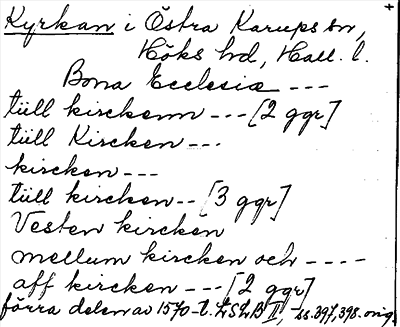 Kyrkan i Östra Karups sn,
Höks hd, Hall. l.
Bona Ecclesia ---
tüll kirckenn --- [2 ggr]
tüll Kircken ---
kircken ---
tüll kircken -- [3 ggr]
Vesten kircken
mellum kircken och ----
aff kircken --- [2 ggr]
förra delen av 1570-t. LSLB II, ss. 397, 398. orig.